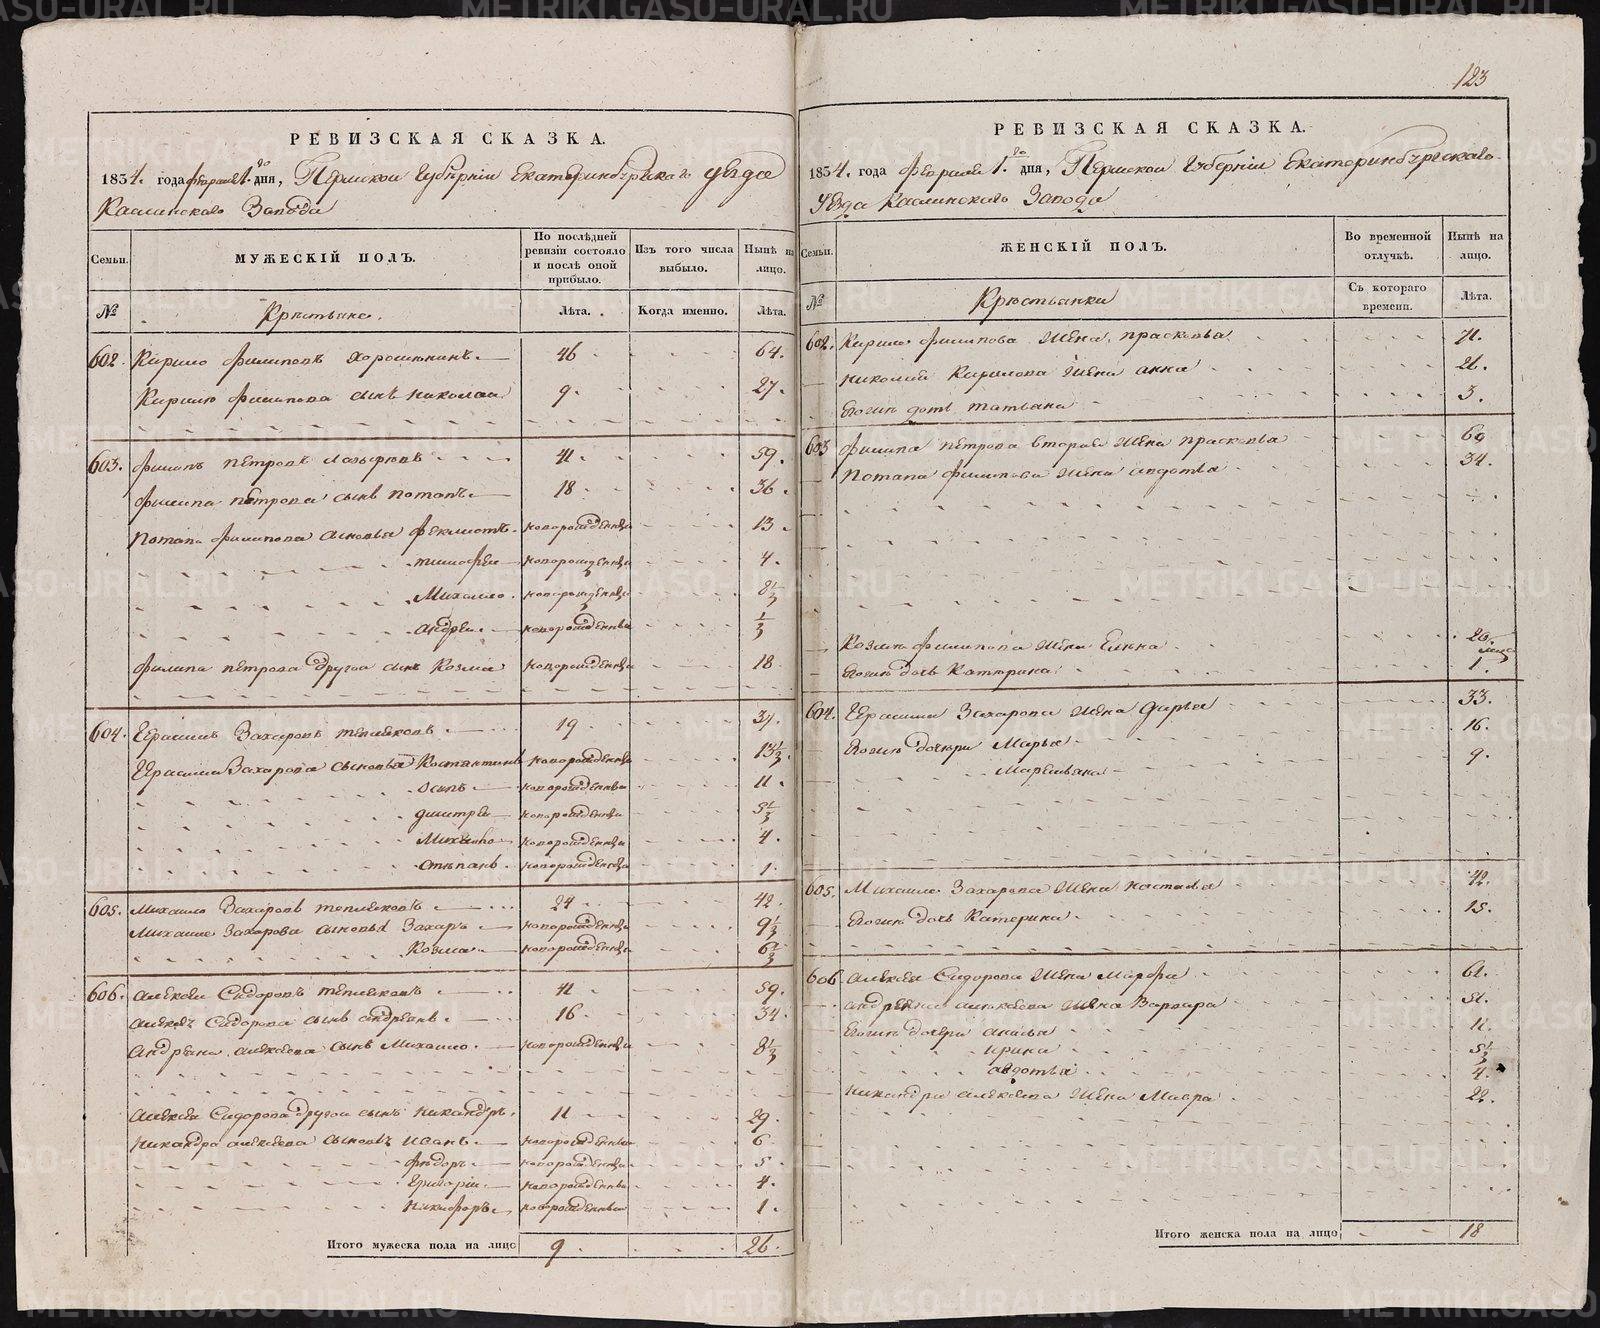 123
РЕВИЗСКАЯ СКАЗКА.
1834. года февраля 1.го дня, Пермской Губернiи Екатеринбургскаго уѣзда
Каслинскаго Завода
Семьи.
МУЖЕСКIЙ ПОЛЪ.
По послѣдней ревизiи состояло и послѣ оной прибыло.
Изъ того числа выбыло.
Нынѣ на лицо.
№
Крестьяне.
Лѣта.
Когда именно.
Лѣта.
602. Кирило Филиповъ Хорошенинъ 46 64.
Кирило Филипова сынъ Николаи 9. 27.
603. Филипъ Петровъ Лазыревъ 41 59.
Филипа Петрова сынъ Потапъ 18 36.
Потапа Филипова сыновья Феклистъ новорожденны 13.
Тимофеи новорожденны 4.
Михаило новорожденны 8 1/3
Андреи новорожденны 1/3
Филипа Петрова другои сынъ Козма новорожденны 18
604. Герасимъ Захаровъ Тепляковъ 19 37.
Герасима Захарова сыновья Костянтинъ новорожденны 13 1/2
Осипъ новорожденны 11
Дмитреи новорожденны 5 1/3
Михаило новорожденны 4.
Степанъ новорожденны 1.
605. Михаило Захаровъ Тепляковъ 24 42.
Михаиле Захарова сыновья Захаръ новорожденны 9 1/3
Козма новорожденны 6 2/3
606. Алексеи Сидоровъ Тепляковъ 41 59.
Алексея Сидорова сынъ Андреянъ 16 34.
Андреяна Алексеева сынъ Михаило новорожденны 8 1/3
Алексея Сидорова другои сынъ Никандръ 11 29.
Никандра Алексеева сыновья Иванъ новорожденны 6
Федоръ новорожденны 5
Григореи новорожденны 4.
Никифоръ новорожденны 1.
Итого мужеска пола на лицо 9 26.
РЕВИЗСКАЯ СКАЗКА.
1834. года февраля 1.го дня, Пермской Губернiи Екатеринбургскаго
Уѣзда Каслинскаго Завода
Семьи.
ЖЕНСКIЙ ПОЛЪ.
Во временной отлучкѣ.
Нынѣ на лицо.
№
Крестьянки
Съ котораго времени.
Лѣта.
602. Кирила Филипова жена Прасковья 71.
Николая Кирилова жена Анна 26.
Евоина дочь Татьяна 3.
603 Филипа Петрова вторая жена Прасковья 69
Потапа Филипова жена Авдотья 34.
Козмы Филипова жена Елена 20.
Евоина дочь Катерина 1.
604. Герасима Захарова жена Дарья 33.
Евоина дочери Марья 16.
Маремьяна 9.
605. Михаила Захарова жена Настасья 42.
Евоина дочь Катерина 15.
606 Алексея Сидорова жена Марфа 61.
Андреяна Алексеева жена Варвара 31.
Евоина дочери Анисья 11.
Ирина 5 1/3
Авдотья 4.
Никандра Алексеева жена Мавра 22.
Итого женска пола на лицо 18